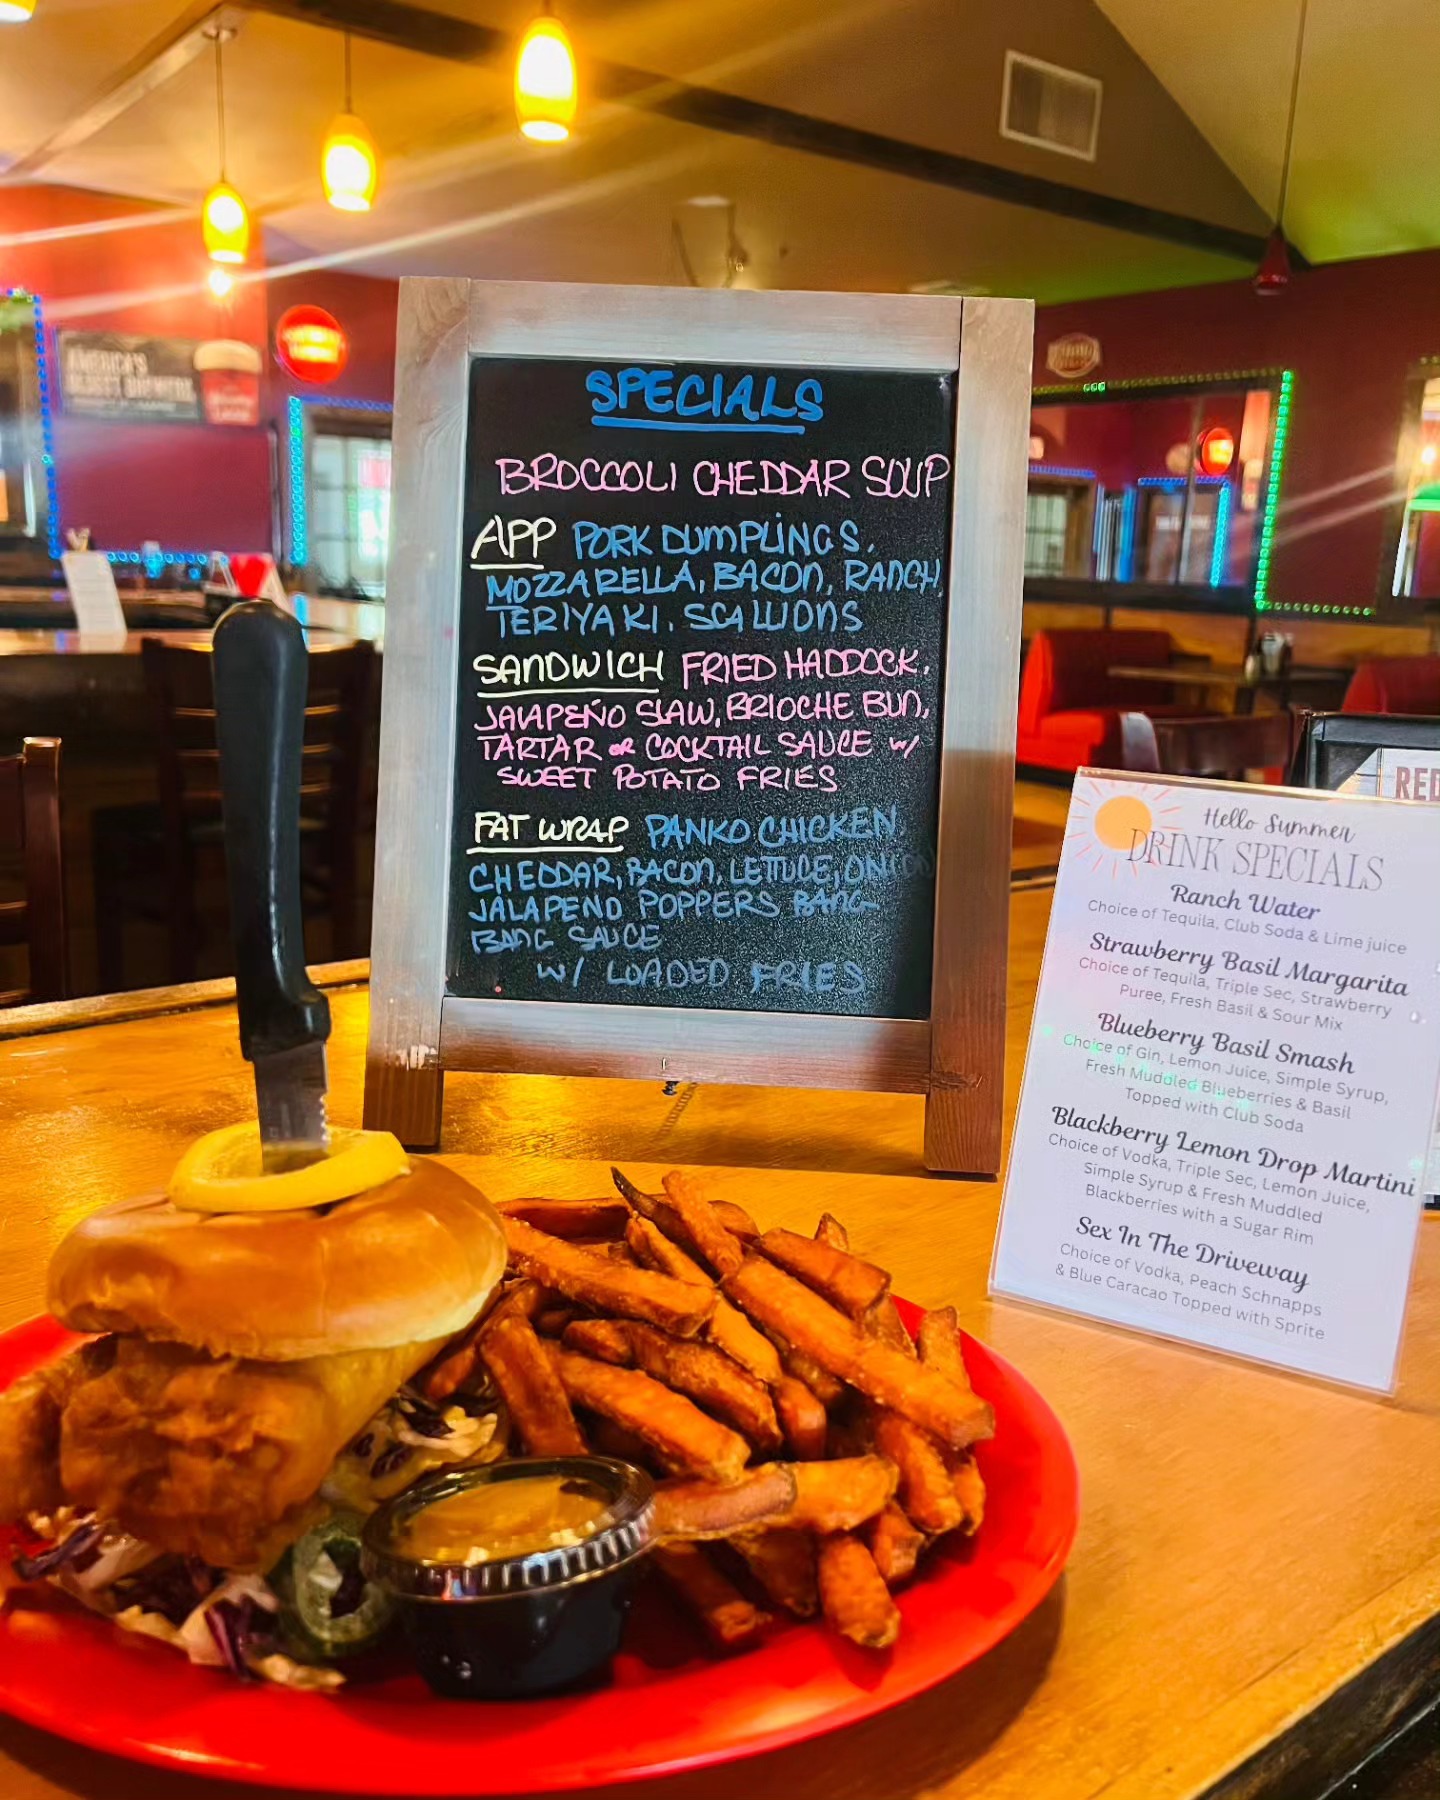 AMERICA'S
OLDEST BREWERY
SPECIALS
BROCCOLI CHEDDAR SOUP
APP PORK DUMPLINGS,
MOZZARELLA, BACON, RANCH,
TERIYAKI, SCALLIONS
SANDWICH FRIED HADDOCK,
JALAPEÑO SLAW, BRIOCHE BUN,
TARTAR OR COCKTAIL SAUCE W/
SWEET POTATO FRIES
FAT WRAP PANKO CHICKEN,
CHEDDAR, BACON, LETTUCE, ONION
JALAPENO POPPERS BANG-
BANG SAUCE
W/ LOADED FRIES
RED
Hello Summer
DRINK SPECIALS
Ranch Water
Choice of Tequila, Club Soda & Lime juice
Strawberry Basil Margarita
Choice of Tequila, Triple Sec, Strawberry
Puree, Fresh Basil & Sour Mix
Blueberry Basil Smash
Choice of Gin, Lemon Juice, Simple Syrup,
Fresh Muddled Blueberries & Basil
Topped with Club Soda
Blackberry Lemon Drop Martini
Choice of Vodka, Triple Sec, Lemon Juice,
Simple Syrup & Fresh Muddled
Blackberries with a Sugar Rim
Sex In The Driveway
Choice of Vodka, Peach Schnapps
& Blue Caracao Topped with Sprite